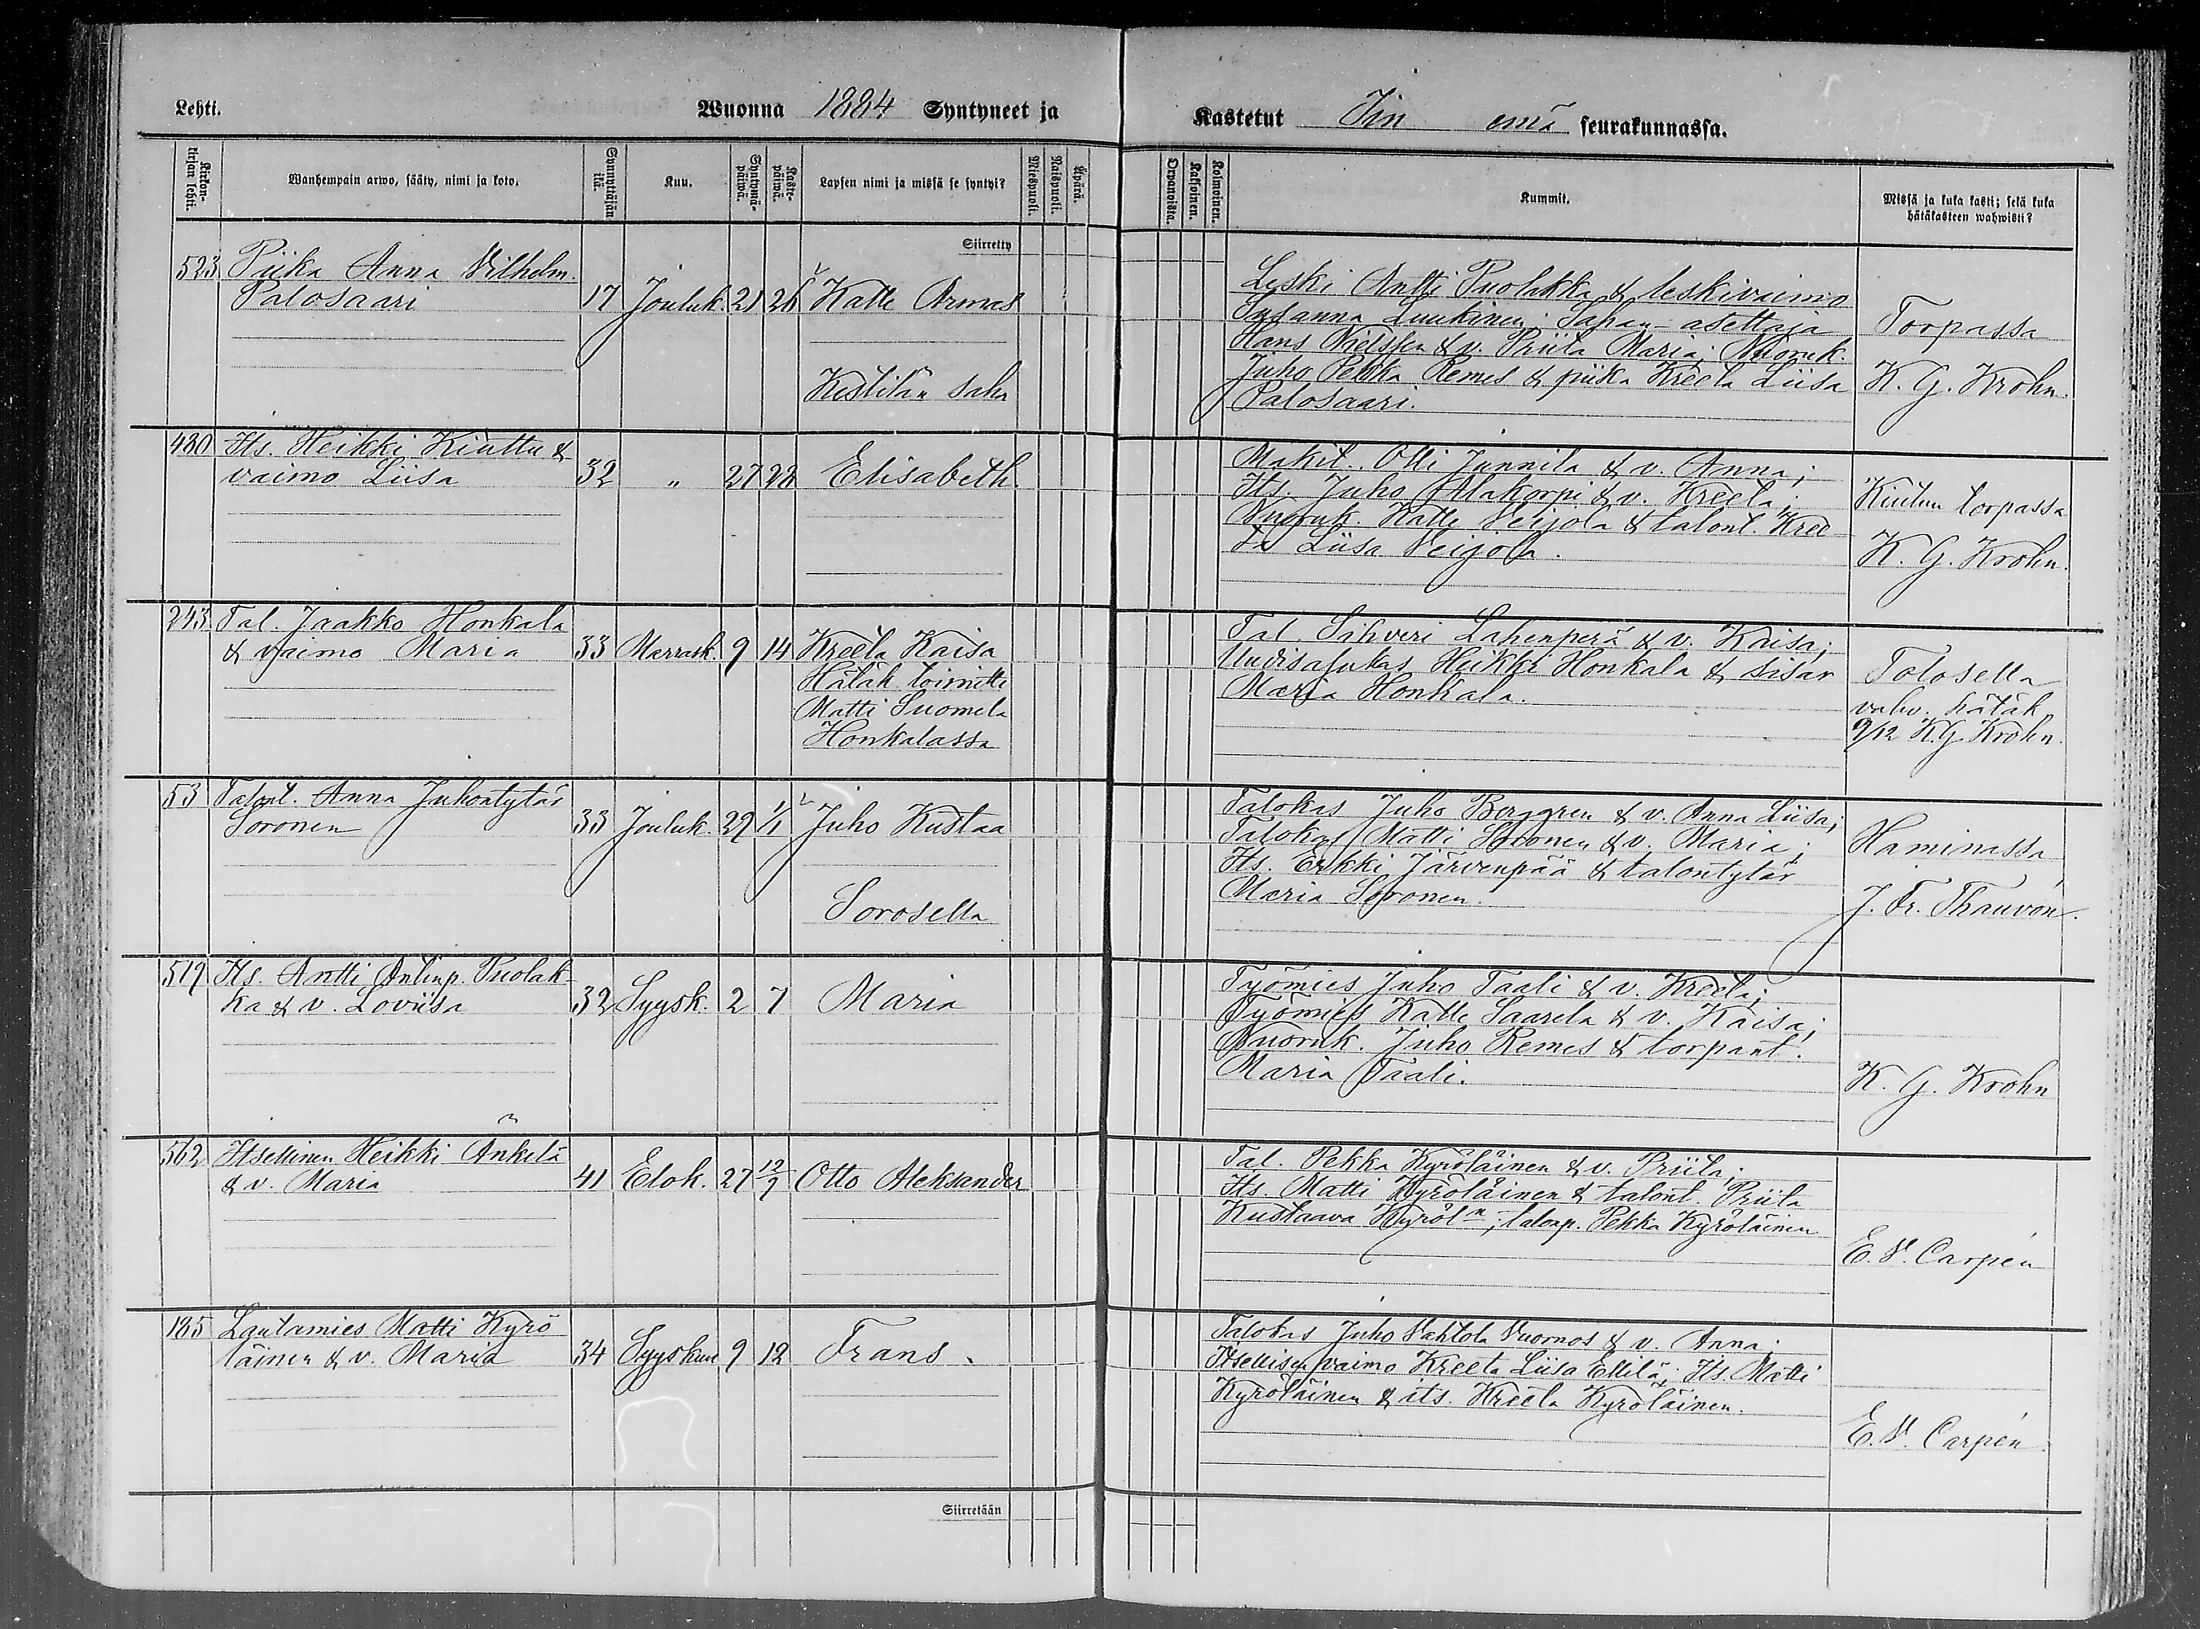 Lehti.
Wuonna 1884 Syntyneet ja
Kastetut Iin emä seurakunnassa.
Kirkonkirjan lehti.
Wanhempain arwo, sääty, nimi ja koto.
Synnyttäjän ikä.
Kuu.
Syntymäpäiwä.
Kastepäiwä.
Lapsen nimi ja missä se syntyi?
Miespuoli.
Naispuoli.
Äpärä.
Orpanoista.
Kaksoinen.
Kolmoinen.
Kummit.
Missä ja kuka kasti; sekä kuka
hätäkasteen wahwisti?
Siirretty
523 Piika Anna Vilhelm.
Palosaari 17 Jouluk. 21 26 Kalle Armas
Kestilän saha
Leski Antti Puolakka & leskivaimo
Susanna Luukinen; Sahan-asettaja
Hans Nielsen & v. Priita Maria; Nuoruk.
Juho Pekka Remes & piika Kreeta Liisa
Palosaari.
Torpassa
K. G. Krohn.
480 Its. Heikki Kiuttu &
vaimo Liisa 32 " 27 28 Elisabeth.
Mäkit. Olli Junnila & v. Anna;
Its. Juho Alakorpi & v. Kreeta;
Nuoruk. Kalle Veijola & talont. Kree-
ta Liisa Veijola.
Kiutun torpassa
K. G. Krohn.
243 Tal. Jaakko Honkala
& vaimo Maria 33 Marrask. 9 14 Kreeta Kaisa
Hätäk. toimitti
Matti Suomela
Honkalassa
Tal. Sihveri Lahenperä & v. Kaisa;
Uudisasukas Heikki Honkala & sisar
Maria Honkala.
Tolosella
vahv. hätäk.
9/12 K.G. Krohn.
53 Talont. Anna Juhontytär
Soronen 33 Jouluk. 29 1/1 Juho Kustaa
Sorosella
Talokas Juho Berggren & v. Anna Liisa;
Talokas Matti Soronen & v. Maria;
Its. Erkki Järvenpää & talontytär
Maria Soronen.
Haminassa
J. Fr. Thauvón.
519 Its. Antti Antinp. Puolak-
ka & v. Loviisa 32 Syysk. 2 7 Maria
Työmies Juho Taali & v. Kreeta;
Työmies Kalle Saarela & v. Kaisa;
Nuoruk. Juho Remes & torpant.
Maria Taali.
K. G. Krohn
562 Itsellinen Heikki Ankelä
& v. Maria 41 Elok. 27 12/9 Otto Aleksander
Tal. Pekka Kyröläinen & v. Priita;
Its. Matti Kyröläinen & talont. Priita
Kustaava Kyröl:n; talonp. Pekka Kyröläinen
E. V. Carpén
185 Lautamies Matti Kyrö-
läinen & v. Maria 34 Syyskuu 9 12 Frans.
Talokas Juho Vahtola Vuornos & v. Anna;
Itsellisen vaimo Kreeta Liisa Ellilä; Its. Matti
Kyröläinen & its. Kreeta Kyröläinen.
E. V. Carpén.
Siirretään